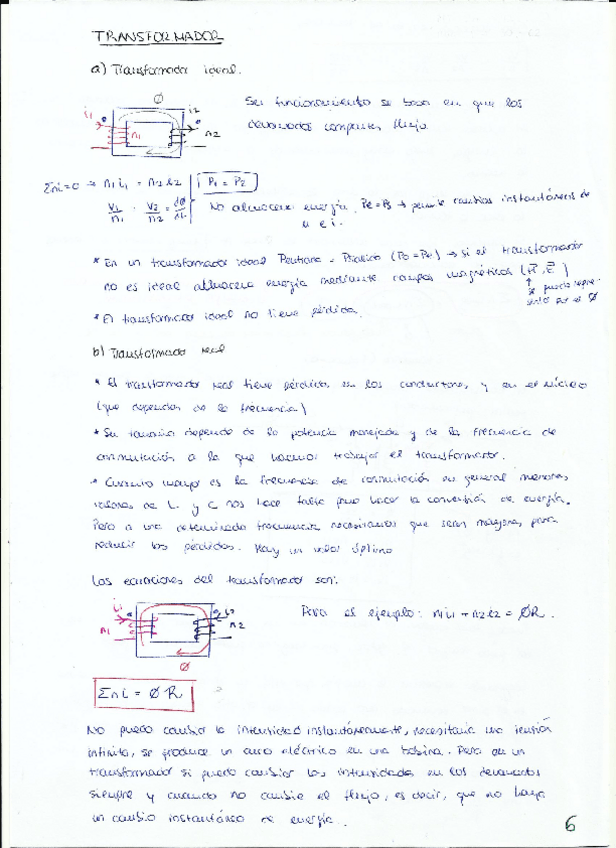 TRANSFORMADOR
a) Transformador ideal.
Ø
i1
i2
n1
n2
Su funcionamiento se basa en que los
devanados comparten flujo.
Σni=0 → n1i1 = n2i2 | P1 = P2
V1/n1 = V2/n2 = dØ/dt
No almacena energía, Pe=Ps → permite cambios instantáneos de
u e i.
* En un transformador ideal Pentrada = Psalida → si el transformador
no es ideal almacena energía mediante campos magnéticos
se puede repre-
sentar por el Ø
* El transformador ideal no tiene pérdida.
b) Transformador real
* El transformador real tiene pérdidas en los conductores, y en el núcleo
(que dependen de la frecuencia)
* Su tamaño depende de la potencia manejada y de la frecuencia de
conmutación a la que hacemos trabajar el transformador.
* Cuanto mayor es la frecuencia de conmutación en general menores
valores de L y C nos hace falta para hacer la conversión de energía.
Pero a una determinada frecuencia necesitamos que sean mayores, para
reducir las pérdidas. Hay un valor óptimo
Las ecuaciones del transformador son:
i1
n1
n2
Ø
Para el ejemplo: n1i1 + n2i2 = ØR.
Σni = Ø R
No puedo cambiar la intensidad instantáneamente, necesitaría una tensión
infinita, se produce un arco eléctrico en una bobina. Pero en un
transformador si puedo cambiar las intensidades en los devanados
siempre y cuando no cambie el flujo, es decir, que no haya
un cambio instantáneo de energía.
6